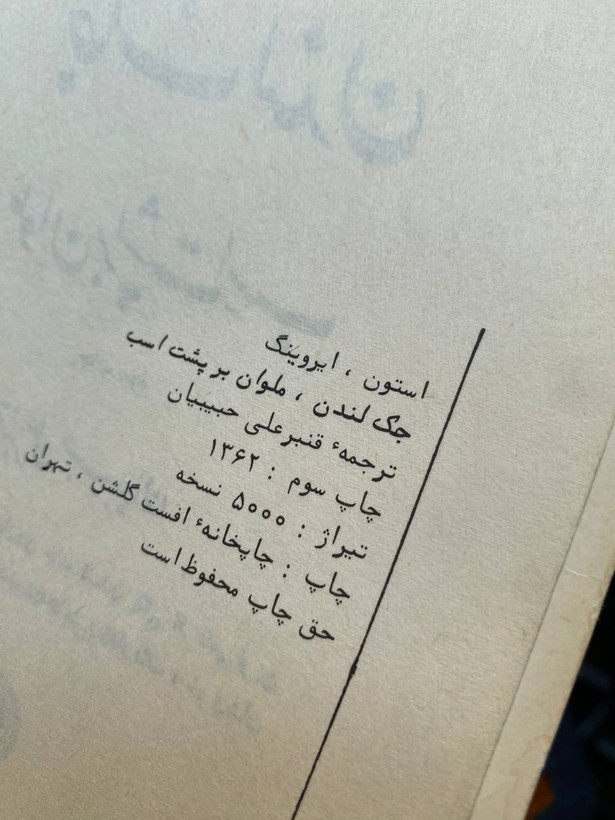 استون ، ایروینگ
جک لندن ، ملوان بر پشت اسب
ترجمهٔ قنبرعلی حبیبیان
چاپ سوم : ۱۳۶۲
تیراژ : ۵۰۰۰ نسخه
چاپ : چاپخانهٔ افست گلشن ، تهران
حق چاپ محفوظ است